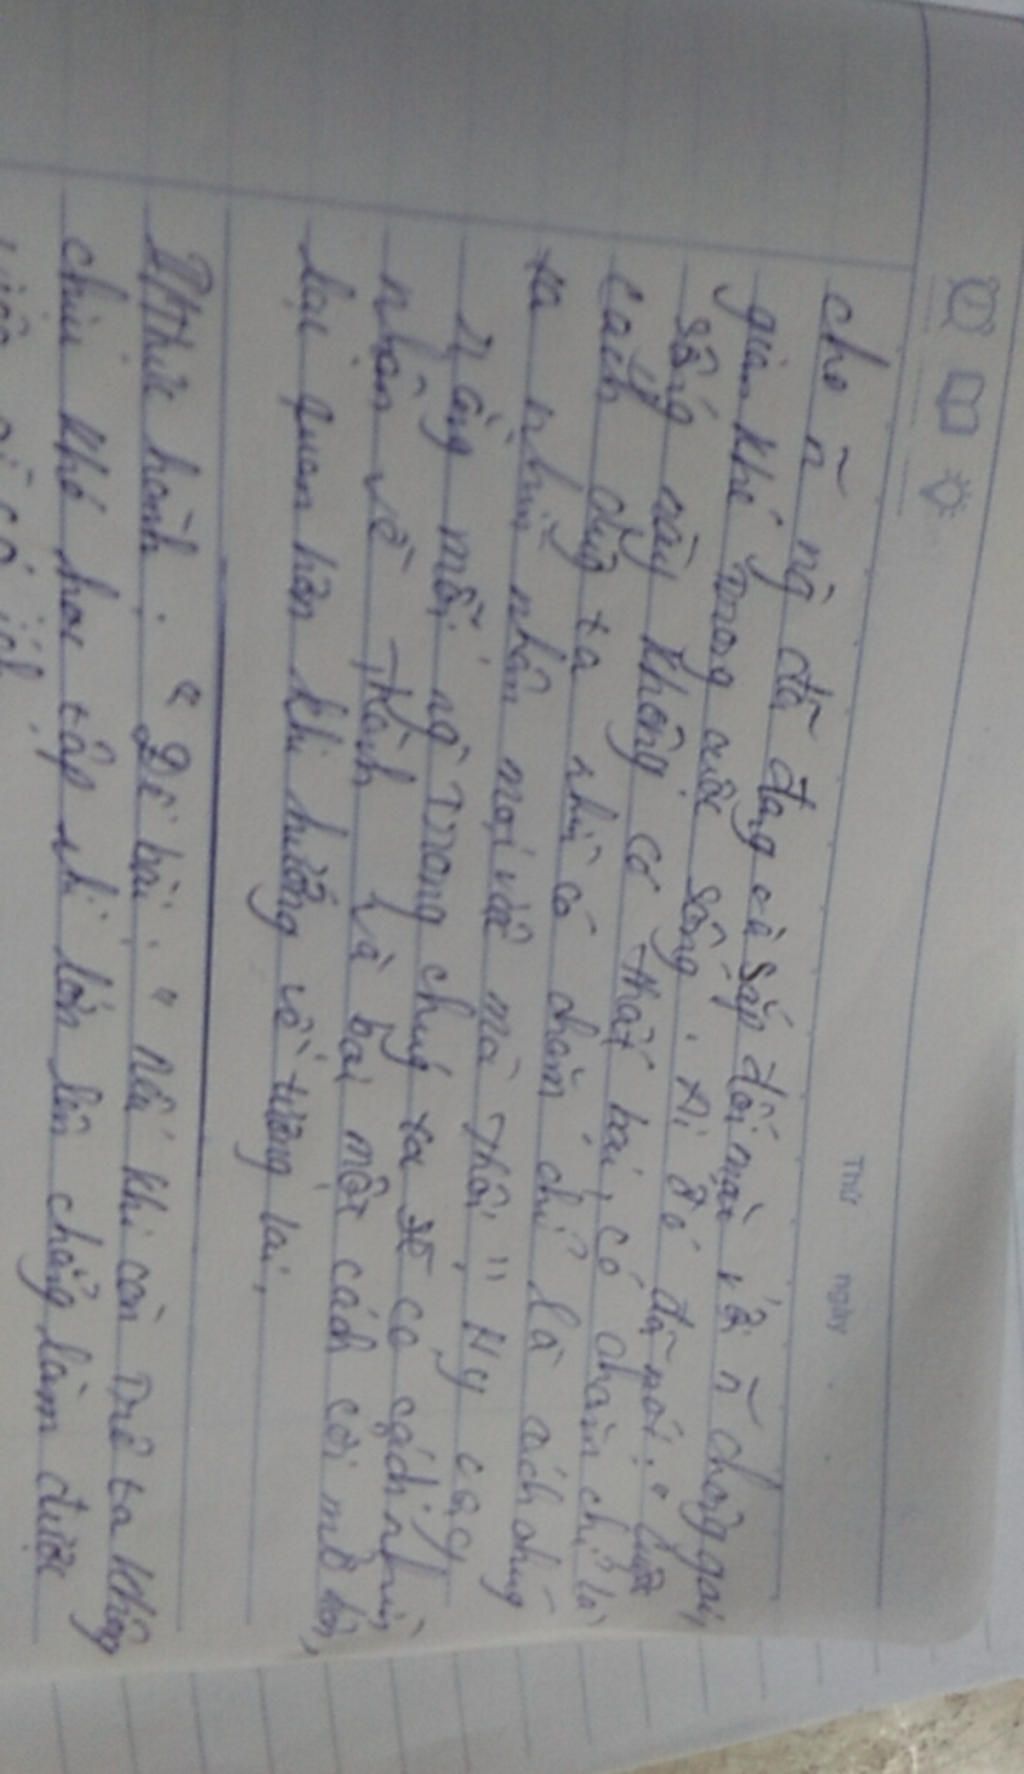 Thứ ngày
cho ~ ng đã đang và sắp đối mặt với ~ chông gai,
gian khó trong cuộc sống. Ai đó đã nói: "cuộc
sống này không có thất bại, có chăng chỉ là
cách chúng ta nhìn có chăng chỉ là cách chúng
ta nhìn nhận mọi vấn mà thôi". Hy vọng
rằng mỗi ng trong chúng ta sẽ có cách nhìn
nhận về thành và bại một cách cởi mở hơn,
lạc quan hơn khi hướng về tương lai.
Thực hành: "Đề bài: "Nếu khi còn trẻ ta không
chịu khó học tập thì lớn lên chẳng làm được
việc gì có ích.